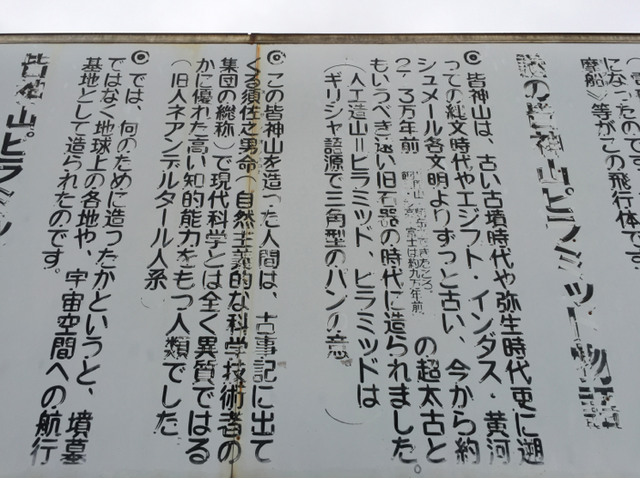 になったのです
磨船》等がこの飛行体です
謎の皆神山ピラミッド物語
◎皆神山は、古い古墳時代や弥生時代更に遡
っての縄文時代やエジプト・インダス・黄河
シュメール各文明よりずっと古い、今から約
2・3万年前 富士は約九万年前 の超太古と
もいうべき遠い旧石器の時代に造られました。
(人工造山=ピラミッド、ピラミッドは
ギリシャ語源で三角型のパンの意)
◎この皆神山を造った人間は、古事記に出て
くる須佐之男命(自然主義的な科学技術者の
集団の総称)で現代科学とは全く異質ではる
かに優れた高い知的能力をもつ人類でした
(旧人ネアンデルタール人系)
◎では、何のために造ったかというと、墳墓
ではなく地球上の各地や、宇宙空間への航行
基地として造られたのです。
皆神山ピラミッ